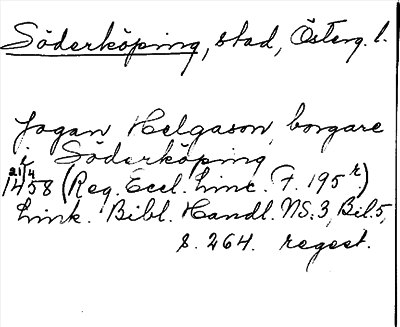 Söderköping, stad, Österg. l.
Jogan Helgason, borgare
i Söderköping
21/4
1458 (Reg. Eccl. Linc. F. 195 r.)
Link. Bibl. Handl. NS. 3, Bil. 5,
s. 264. regest.